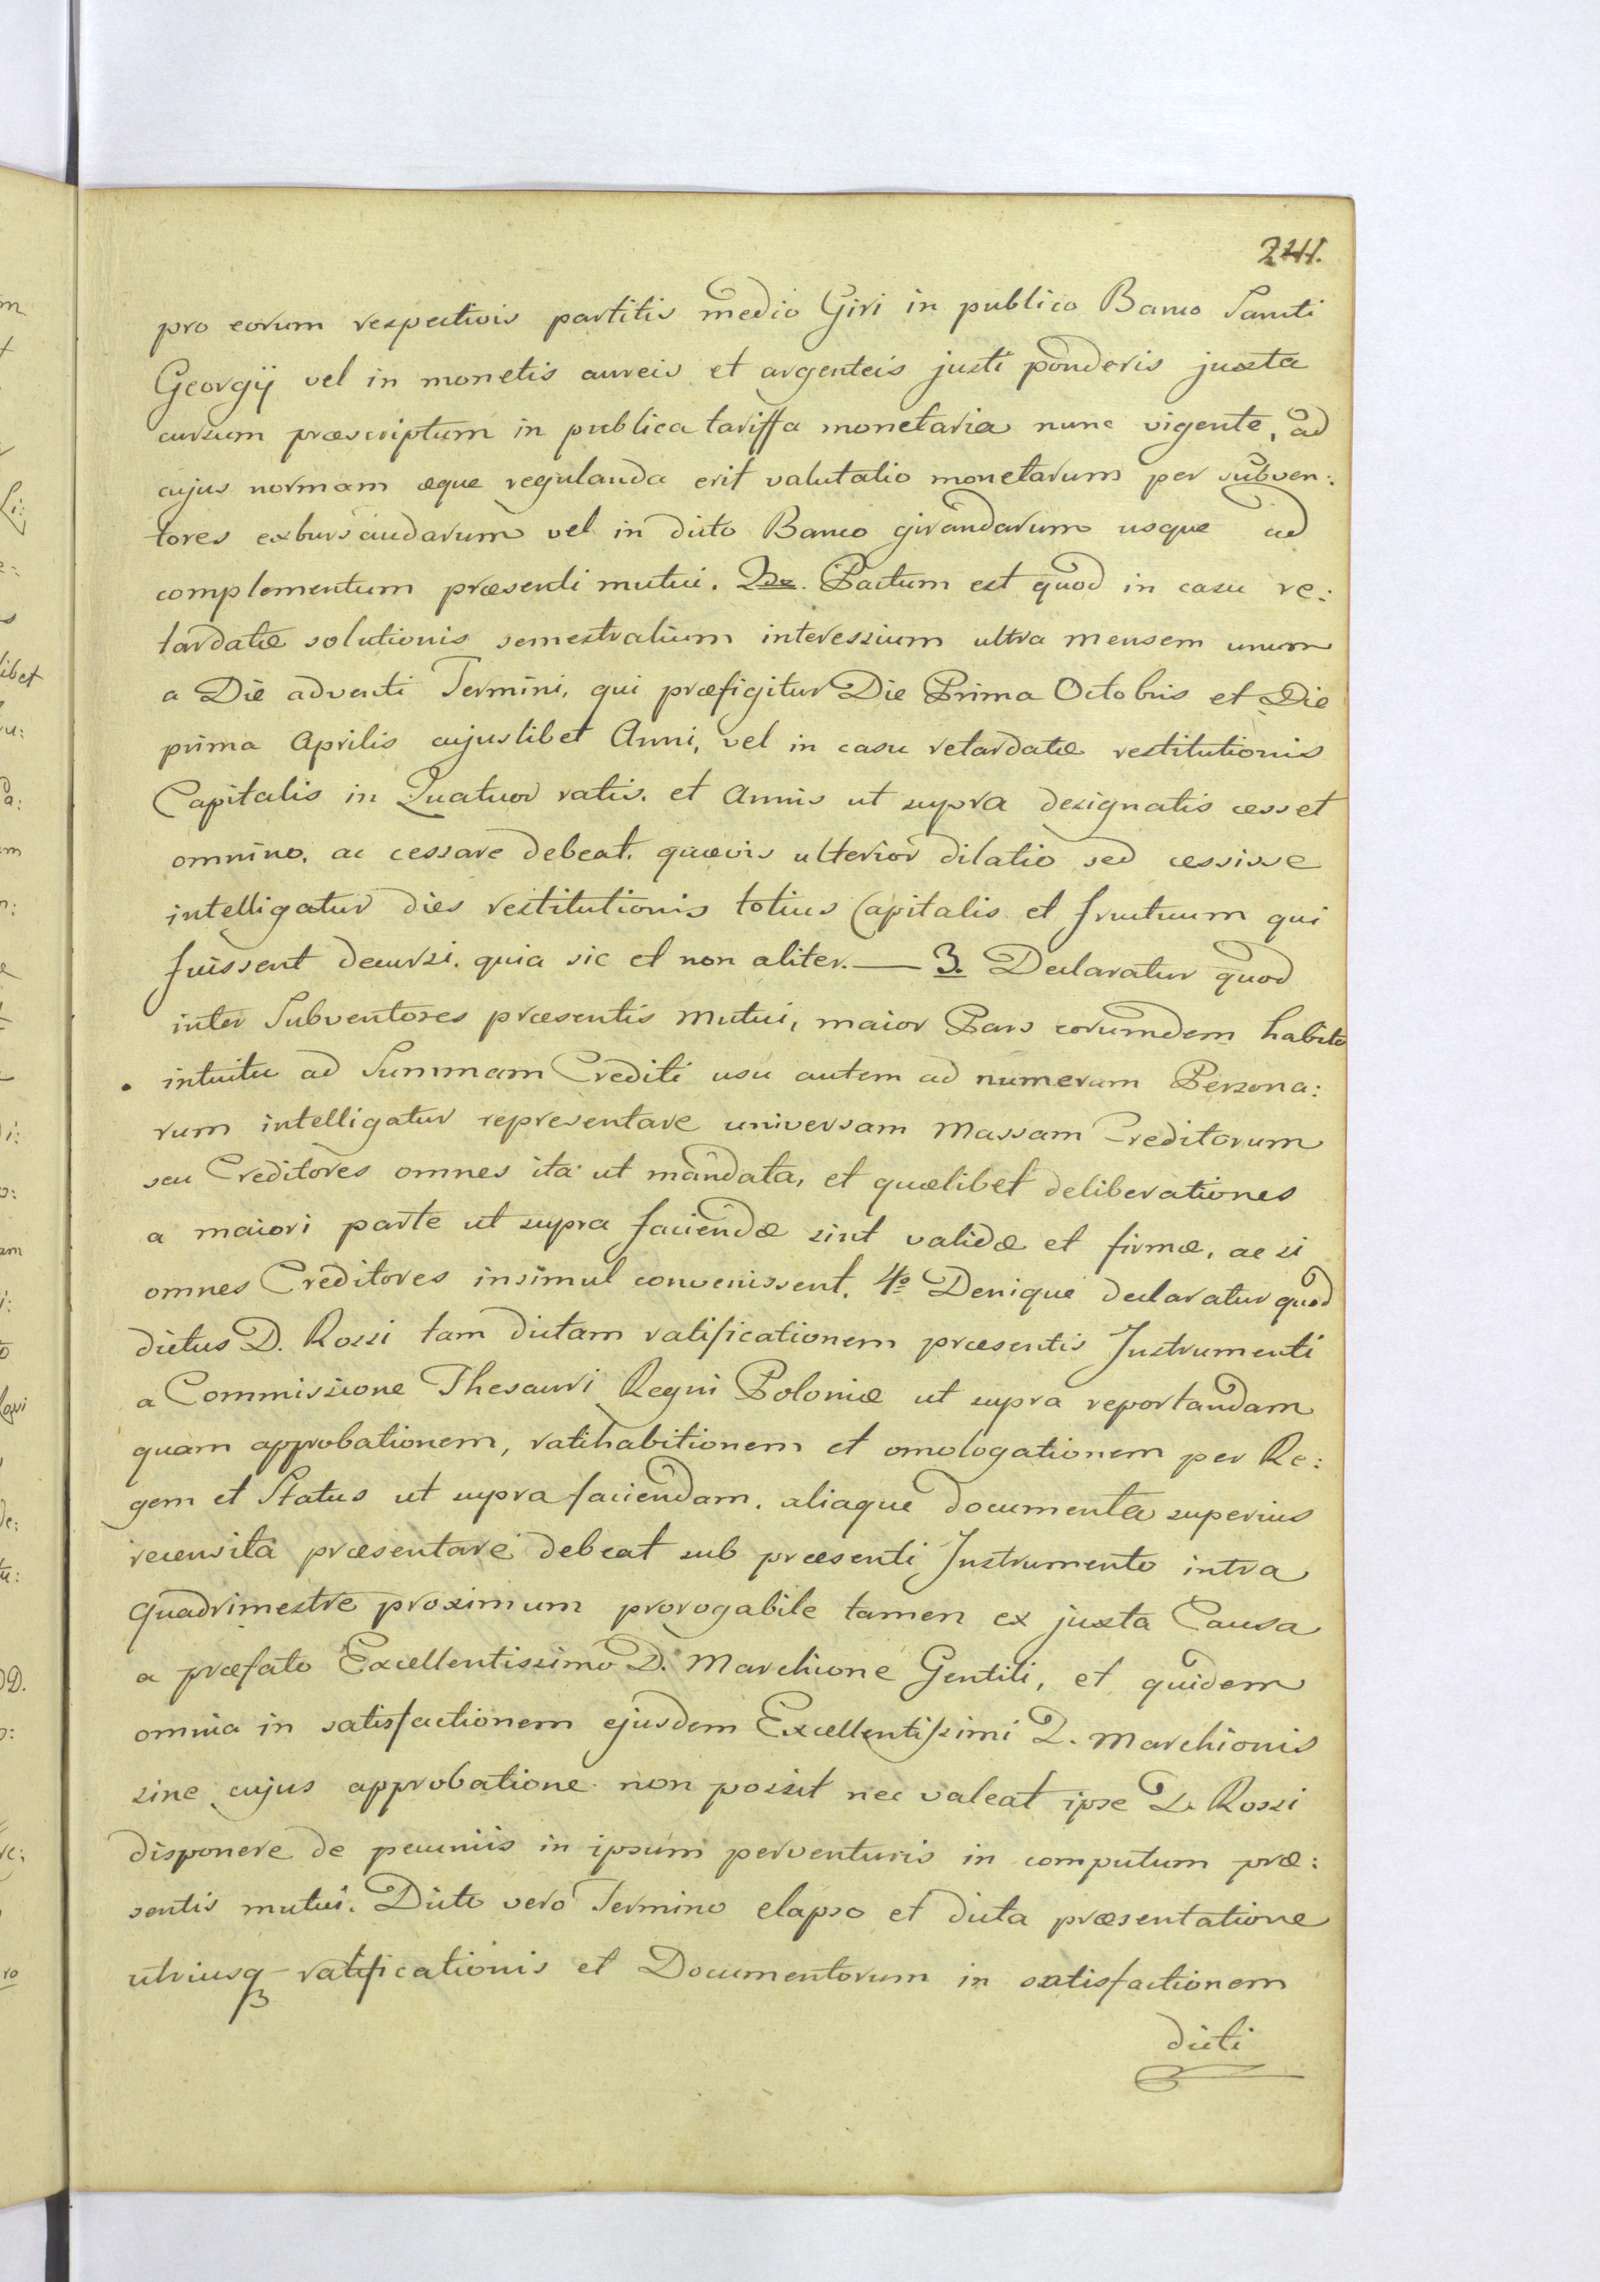 241.
pro eorum respectivis partitis medio Giri in publico Banco Sancti
Georgÿ vel in monetis aureis et argenteis justi ponderis juxta
cursum præscriptum in publica tariffa monetaria nunc vigente, ad
cujus normam æque regulanda erit valutatio monetarum per subven:
tores exbursandarum vel in dicto Banco girandarum usque ad
complementum præsenti mutui. 2do. Pactum est quod in casu re:
tardatæ solutionis semestralium interessium ultra mensem unum
a Die adventi Termini, qui præfigitur Die Prima Octobris et Die
prima Aprilis cujuslibet Anni, vel in casu retardatæ restitutionis
Capitalis in Quatuor ratis. et Annis ut supra designatis cesset
omnino. ac cessare debeat. quævis ulterior dilatio sed cessisse
intelligatur dies restitutionis totius Capitalis et fructuum qui
fuissent decursi. quia sic et non aliter. — 3. Declaratur quod
inter Subventores præsentis mutui, maior Pars eorumdem habito
intuitu ad Summam Crediti usu autem ad numerum Persona:
rum intelligatur representare universam Massam Creditorum
seu Creditores omnes ita ut mandata, et quælibet deliberationes
a maiori parte ut supra faciendæ sint validæ et firmæ, ac si
omnes Creditores insimul convenissent. 4º Denique declaratur quod
dictus D. Rossi tam dictam ratificationem præsentis Instrumenti
a Commissione Thesauri Regni Poloniæ ut supra reportandam
quam approbationem, ratihabitionem et omologationem per Re:
gem et Status ut supra faciendam. aliaque documenta superius
recensita præsentare debeat sub præsenti Instrumento intra
quadrimestre proximum prorogabile tamen ex juxta Causa
a præfato Excellentissimo D. Marchione Gentili, et quidem
omnia in satisfactionem ejusdem Excellentissimi D. Marchionis
sine cujus approbatione non possit nec valeat ipse D. Rossi
disponere de pecuniis in ipsum perventuris in computum præ:
sentis mutui. Dicto vero Termino elapso et dicta præsentatione
utriusq ratificationis et Documentorum in satisfactionem
dicti